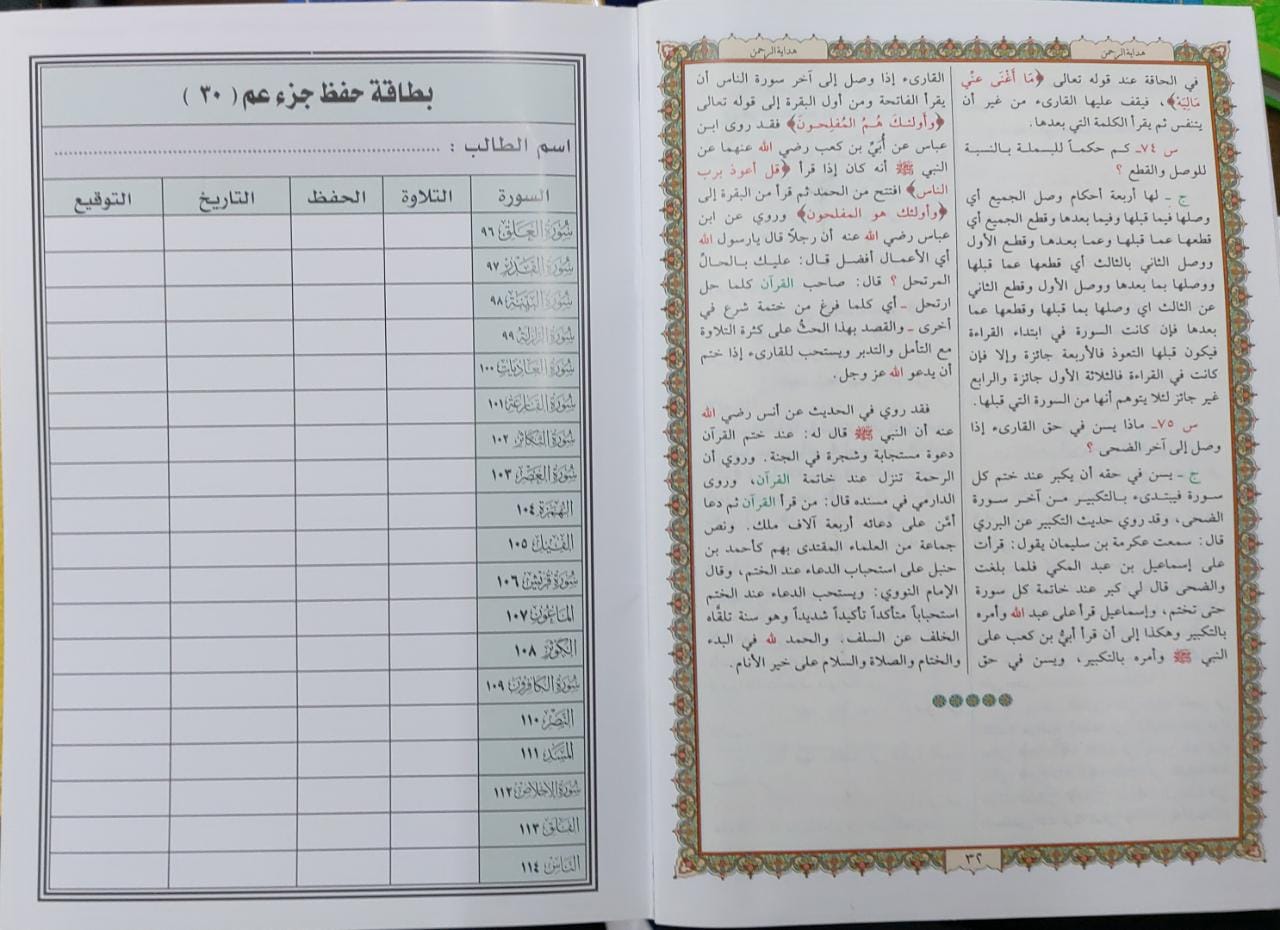 هداية الرحمن
هداية الرحمن
في الحاقة عند قوله تعالى ﴿مَا أَغْنَى عَنِّي
مَالِيَهْ﴾، فيقف عليها القارىء من غير أن
يتنفس ثم يقرأ الكلمة التي بعدها.
س ٧٤ـ كم حكماً للبسملة بالنسبة
للوصل والقطع ؟
ج ـ لها أربعة أحكام وصل الجميع أي
وصلها فيما قبلها وفيما بعدها وقطع الجميع أي
قطعها عما قبلها وعما بعدها وقطع الأول
ووصل الثاني بالثالث أي قطعها عما قبلها
ووصلها بما بعدها ووصل الأول وقطع الثاني
عن الثالث اي وصلها بما قبلها وقطعها عما
بعدها فإن كانت السورة في ابتداء القراءة
فيكون قبلها التعوذ فالأربعة جائزة وإلا فإن
كانت في القراءة فالثلاثة الأول جائزة والرابع
غير جائز لئلا يتوهم أنها من السورة التي قبلها.
س ٧٥ـ ماذا يسن في حق القارىء إذا
وصل إلى آخر الضحى ؟
ج ـ يسن في حقه أن يكبر عند ختم كل
سورة فيبتدىء بالتكبير من آخر سورة
الضحى، وقد روي حديث التكبير عن البرري
قال: سمعت عكرمة بن سليمان يقول: قرأت
على إسماعيل بن عبد المكي فلما بلغت
والضحى قال لي كبر عند خاتمة كل سورة
حتى تختم، وإسماعيل قرأ على عبد الله وأمره
بالتكبير وهكذا إلى أن قرأ أبيُّ بن كعب على
النبي ﷺ وأمره بالتكبير، ويسن في حق
القارىء إذا وصل إلى آخر سورة الناس أن
يقرأ الفاتحة ومن أول البقرة إلى قوله تعالى
﴿وأولئك هُمُ المُفلِحونَ﴾ فقد روى ابن
عباس عن أُبَيِّ بن كعب رضي الله عنهما عن
النبي ﷺ أنه كان إذا قرأ ﴿قل أعوذ برب
الناس﴾ افتتح من الحمد ثم قرأ من البقرة إلى
﴿وأولئك هو المفلحون﴾ وروي عن ابن
عباس رضي الله عنه أن رجلاً قال يارسول الله
أي الأعمال أفضل قال: عليك بالحالِّ
المرتحل ؟ قال: صاحب القرآن كلما حل
ارتحل ـ أي كلما فرغ من ختمة شرع في
أخرى ـ والقصد بهذا الحثُّ على كثرة التلاوة
مع التأمل والتدبر ويستحب للقارىء إذا ختم
أن يدعو الله عز وجل.
فقد روي في الحديث عن أنس رضي الله
عنه أن النبي ﷺ قال له: عند ختم القرآن
دعوة مستجابة وشجرة في الجنة. وروي أن
الرحمة تنزل عند خاتمة القرآن، وروى
الدارمي في مسنده قال: من قرأ القرآن ثم دعا
أمَّن على دعائه أربعة آلاف ملك. ونص
جماعة من العلماء المقتدى بهم كأحمد بن
حنبل على استحباب الدعاء عند الختم، وقال
الإمام النووي: ويستحب الدعاء عند الختم
استحباباً متأكداً تأكيداً شديداً وهو سنة تلقَّاه
الخلف عن السلف. والحمد لله في البدء
والختام والصلاة والسلام على خير الأنام.
٣٢
بطاقة حفظ جزء عم ( ٣٠ )
اسم الطالب : ................................................................
السورة التلاوة الحفظ التاريخ التوقيع
سُورَةُ العَلَق ٩٦
سُورَةُ القَدْر ٩٧
سُورَةُ البَيِّنَة ٩٨
سُورَةُ الزَّلْزَلَة ٩٩
سُورَةُ العَادِيَات ١٠٠
سُورَةُ القَارِعَة ١٠١
سُورَةُ التَّكَاثُر ١٠٢
سُورَةُ العَصْر ١٠٣
الهُمَزَة ١٠٤
الفِيل ١٠٥
سُورَةُ قُرَيْش ١٠٦
المَاعُون ١٠٧
الكَوْثَر ١٠٨
سُورَةُ الكَافِرُون ١٠٩
النَّصْر ١١٠
المَسَد ١١١
سُورَةُ الإِخْلَاص ١١٢
الفَلَق ١١٣
النَّاس ١١٤